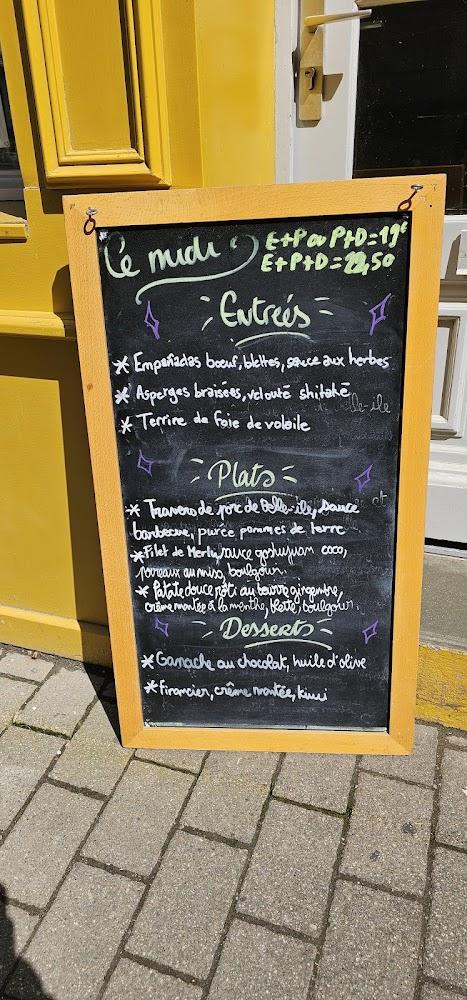 Ce midi
E+P ou P+D = 19€
E+P+D = 22,50
Entrées
* Empañadas boeuf, blettes, sauce aux herbes
* Asperges braisées, velouté shitaké
* Terrine de foie de volaile
Plats
* Travers de porc de Belle-ile, sauce
barbecue, purée pommes de terre
* Filet de Merlu, sauce goshujuan coco,
poireaux au miso, boulgour.
* Patate douce rôti au beurre gingembre,
crème montée à la menthe, blette, boulgour.
Desserts
* Ganache au chocolat, huile d'olive
* Financier, crème montée, kiwi